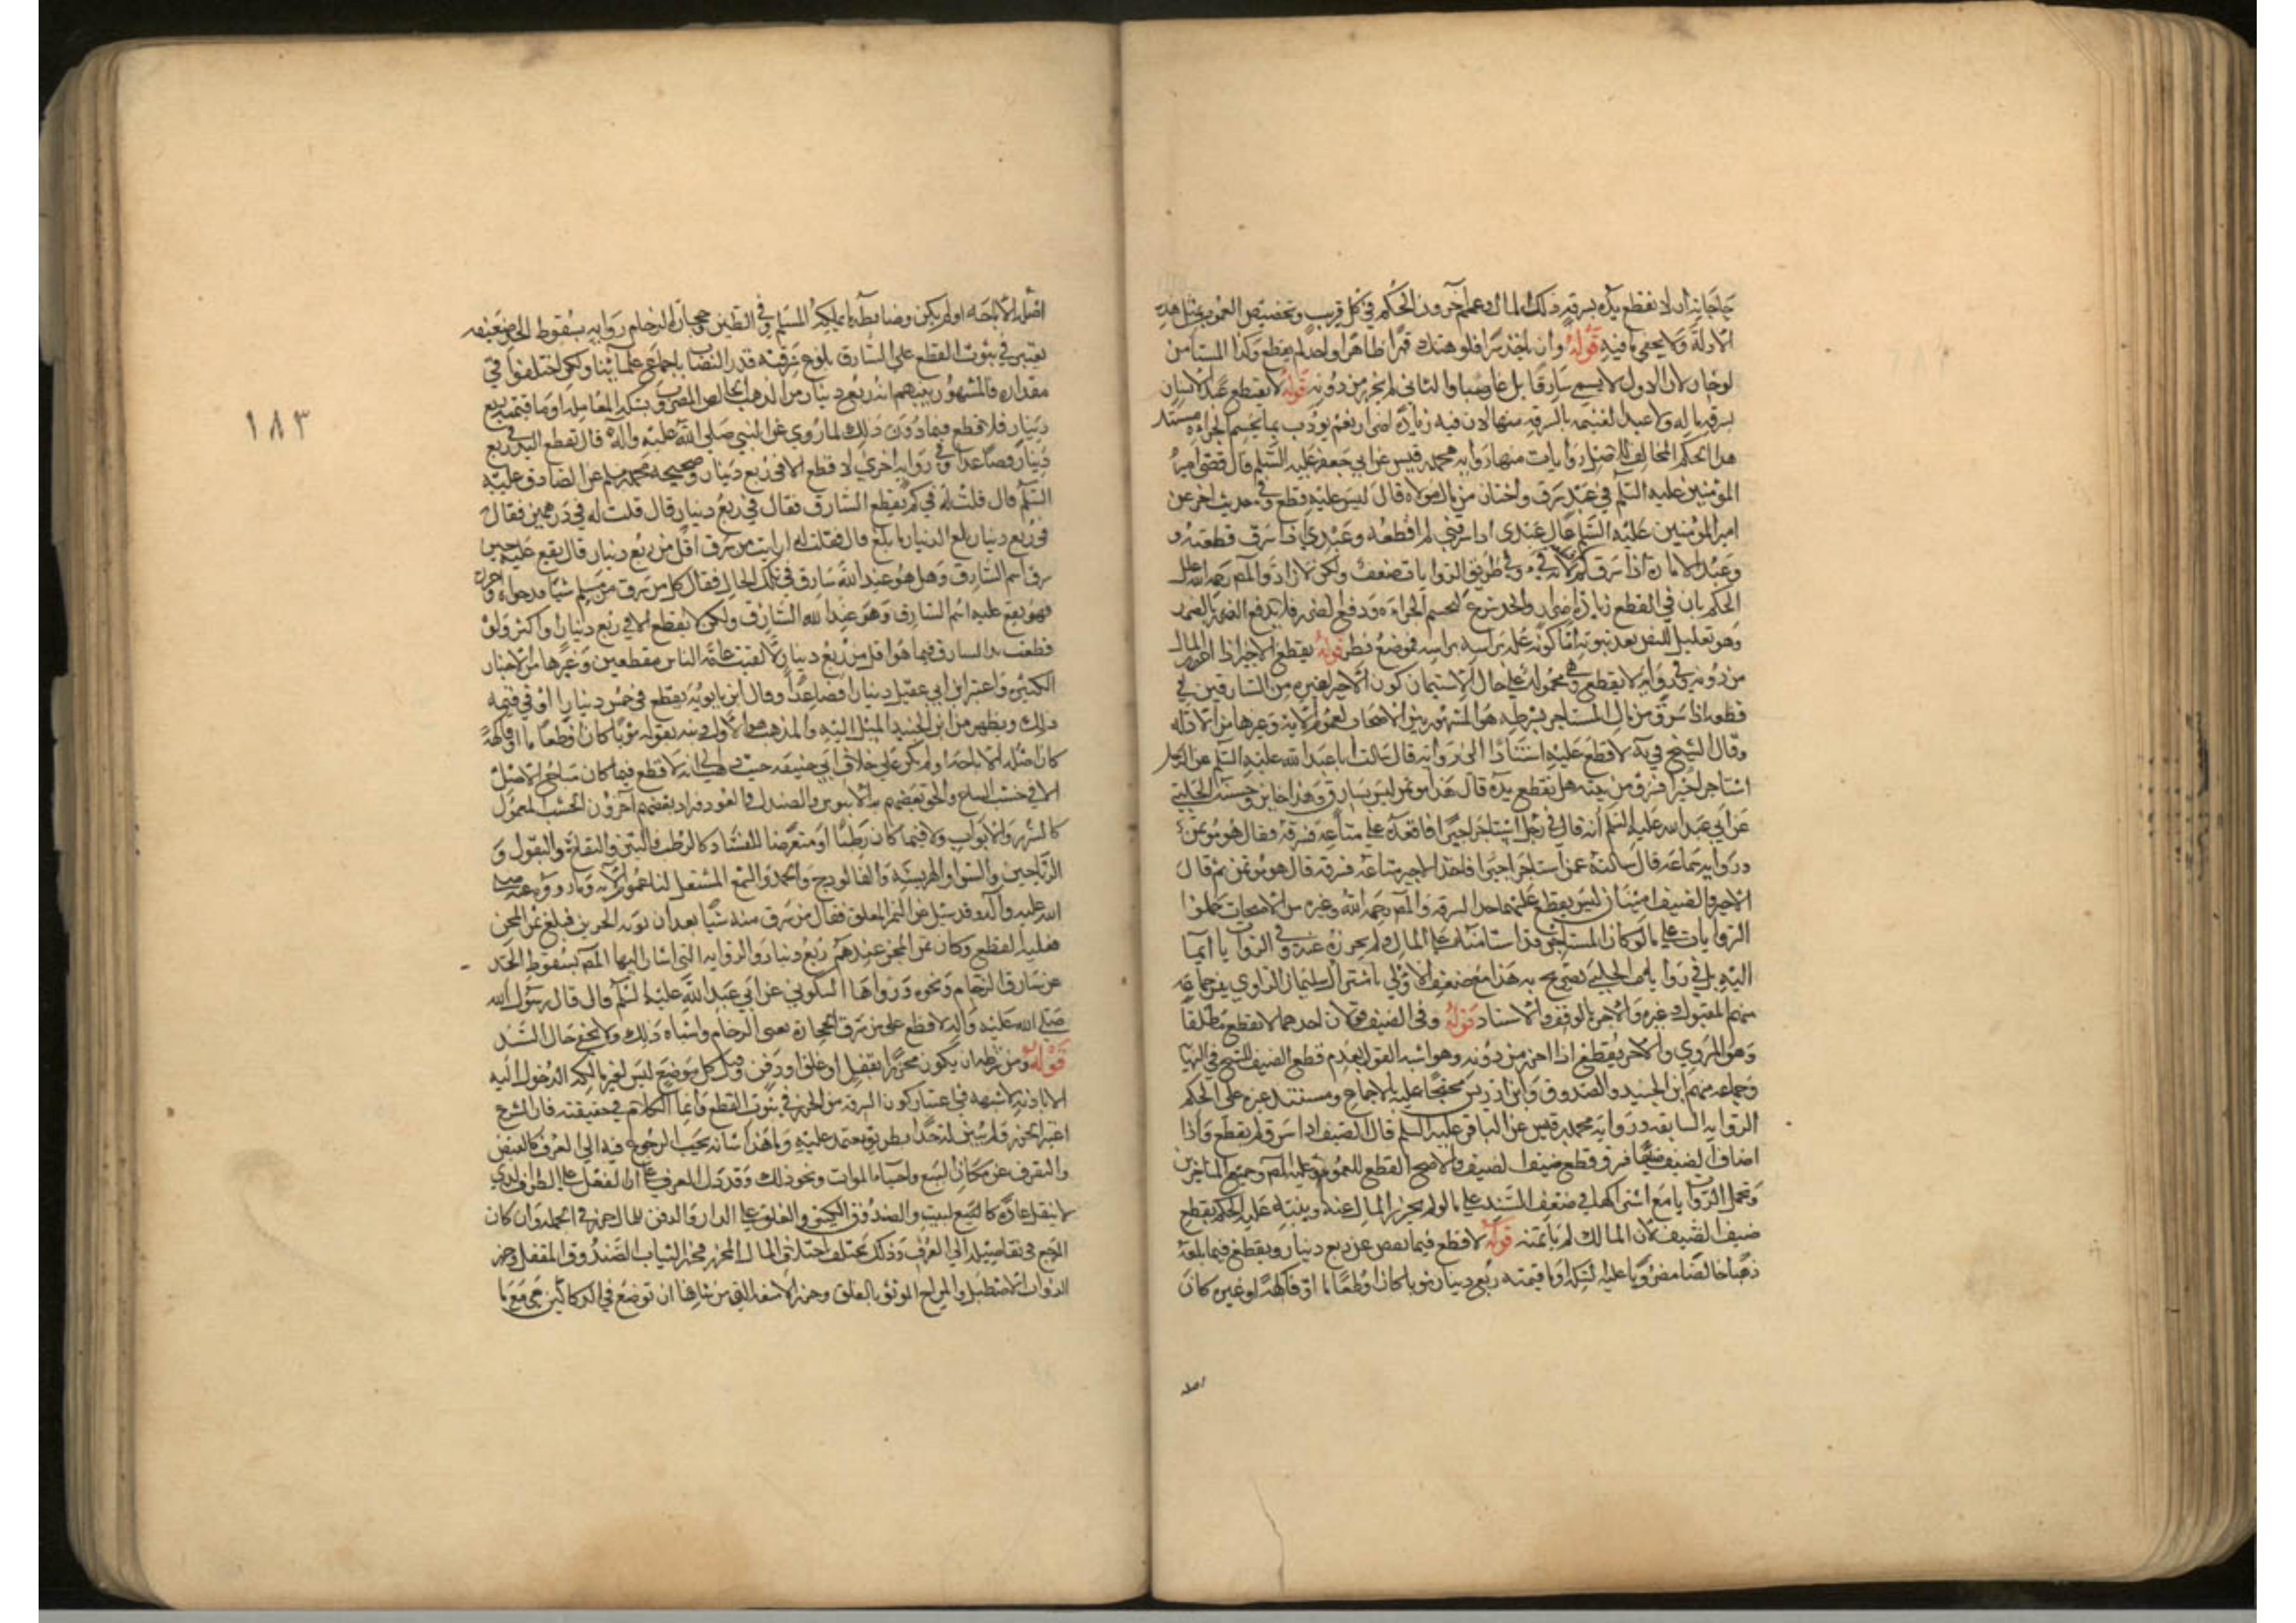 حاجاته أن لا تقطع يده بسرقة ذلك المال وعمم آخرون الحكم في كل قريب وتخصيص العموم بمثل هذه
الأدلة ولا يخفى ما فيه قوله وأن يأخذ سرا فلو هتك قهرا ظاهرا وأخذ لم يقطع وكذا المستأمن
لو خان لأن الأول لا يسمى سارقا بل غاصبا والثاني لم يحرز من دونه قوله لا يقطع عبد الإنسان
بسرقة ماله ولا عبد الغنيمة بالسرقة منها لأن فيه زيادة إضرار نعم يؤدب بما يحسم الجرأة مستند
هذا الحكم المخالف للأصل روايات منها رواية محمد قيس عن أبي جعفر عليه السلم قال قضى أمير
المؤمنين عليه السلم في عبد سرق واختان من مال مولاه قال ليس عليه قطع وفي حديث آخر عن
أمير المؤمنين عليه السلم قال عبدي إذا سرقني لم أقطعه وعبدي إذا سرق قطعته و
وعبد الإمارة إذا سرق لم لأنه فيء وفي طريق الروايات ضعف ولكن لا راد والمص رحمه الله علل
الحكم بأن في القطع زيادة إضرار والحد شرع لحسم الجرأة ودفع الضرر فلا يدفع الضرر بالضرر
وهو تعليل للنص بعد ثبوته أما كونه علة برأسه فموضع نظر قوله يقطع الأجير إذا أحرز المال
من دونه وفي رواية لا يقطع وهي محمولة على حال الاستيمان كون الأجير كغيره من السارقين في
قطعه إذا سرق من مال المستأجر بشرطه هو المشهور بين الأصحاب لعموم الآية وغيرها من الأدلة
وقال الشيخ في ية لا قطع عليه استنادا إلى رواية قال سألت أبا عبد الله عليه السلم عن الرجل
استأجر أجيرا فسرق من بيته هل تقطع يده قال هذا مؤتمن ليس بسارق وهذا خاين وحسنة الحلبي
عن أبي عبد الله عليه السلم أنه قال في رجل استأجر أجيرا فأقعده على متاعه فسرقه فقال هو مؤتمن
ورواية سماعة قال سألته عمن استأجر أجيرا فأخذ الأجير متاعه فسرقه قال هو مؤتمن ثم قال
الأجير والضيف أمينان ليس يقطع عليهما حد السرقة والمص رحمه الله وغيره من الأصحاب حملوا
الروايات على ما لو كان المستأجر قد استأمنه على المال ولم يحرزه عنه وفي الروايات إيماء
إليه بل في رواية الحلبي تصريح به هذا مع ضعف الأولى باشتراك سليمان الراوي بين جماعة
منهم المقبول وغيره والأخر بالوقف والإسناد قوله وفي الضيف قولان أحدهما لا يقطع مطلقا
وهو المروي والآخر يقطع إذا أحرز من دونه وهو أشبه القول بعدم قطع الضيف للشيخ في النهاية
وجماعة منهم ابن الجنيد والصدوق وابن إدريس محتجا عليه بالإجماع ومستند غيره على الحكم
الرواية السابقة ورواية محمد بن قيس عن الباقر عليه السلم قال الضيف إذا سرق لم يقطع وإذا
أضاف الضيف ضيفا فسرق قطع ضيف الضيف والأصح القطع للعموم وعليه المص وجميع المتأخرين
وتحمل الروايات مع اشتراكها في ضعف السند على ما لو لم يحرز المال عنه وينبه عليه الحكم بقطع
ضيف الضيف لأن المالك لم يأتمنه قوله لا قطع فيما نقص عن ربع دينار ويقطع فيما بلغه
ذهبا خالصا مضروبا عليه السكة أو ما قيمته ربع دينار ثوبا كان أو طعاما أو فاكهة أو غيره كان
اصله
١٨٣
أصله الإباحة أو لم يكن وضابطه ما يملكه المسلم وفي الطين وحجارة الرخام رواية بسقوط الحد ضعيفه
يعتبر في ثبوت القطع على السارق بلوغ سرقته قدر النصاب بإجماع علمائنا ولكن اختلفوا في
مقداره فالمشهور بينهم أنه ربع دينار من الذهب الخالص المضروب بسكة المعاملة أو ما قيمته ربع
دينار فلا قطع فيما دون ذلك لما روي عن النبي صلى الله عليه وآله قال تقطع اليد في ربع
دينار فصاعدا وفي رواية أخرى لا قطع إلا في ربع دينار وصحيحة محمد بن مسلم عن الصادق عليه
السلم قال قلت له في كم يقطع السارق فقال في ربع دينار قال قلت له في درهمين فقال
في ربع دينار بلغ الدينار ما بلغ قال فقلت له أرأيت من سرق أقل من ربع دينار قال يقع عليه حين
سرق اسم السارق وهل هو عند الله سارق في تلك الحال فقال كل من سرق من مسلم شيئا قد حواه وأحرزه
فهو يقع عليه اسم السارق وهو عند الله السارق ولكن لا يقطع إلا في ربع دينار أو أكثر ولو
قطعت يد السارق فيما هو أقل من ربع دينار لألفيت عامة الناس مقطعين وغيرها من الأخبار
الكثيرة واعتبر ابن أبي عقيل دينارا فصاعدا وقال ابن بابويه يقطع في خمس دينار أو في قيمة
ذلك ويظهر من ابن الجنيد الميل إليه والمذهب هو الأول ونبه بقوله ثوبا كان أو طعاما أو فاكهة
كان أصله الإباحة أو لم يكن على خلاف أبي حنيفة حيث ذهب إلى أنه لا قطع فيما كان مباح الأصل
إلا في خشب الساج وألحق بعضهم به الأبنوس والصندل والعود وزاد بعضهم آخرون الخشب المعمول
كالسرر والأبواب ولا فيما كان رطبا أو متعرضا للفساد كالرطب والتين والتفاح والبقول و
الرياحين والشواء والهريسة والفالوذج والجمد والشمع المشتعل لنا عموم الآية وما روي عنه صلى
الله عليه وآله وقد سئل عن التمر المعلق فقال من سرق منه شيئا بعد أن يؤيه الجرين فبلغ ثمن المجن
فعليه القطع وكان ثمن المجن عندهم ربع دينار والرواية التي أشار إليها المص بسقوط الحد
عن سارق الرخام ونحوه رواها السكوني عن أبي عبد الله عليه السلم قال قال رسول الله
صلى الله عليه وآله لا قطع على من سرق الحجارة يعني الرخام وأشباه ذلك ولا يخفى حال السند
قوله ومن شرطه أن يكون محرزا بقفل أو غلق أو دفن وقيل كل موضع ليس لغير مالكه الدخول إليه
إلا بإذنه لا شبهة في اعتبار كون السرقة من الحرز في ثبوت القطع وإنما الكلام في حقيقته فإن الشرع
اعتبر الحرز ولم يبين له حدا بطريق يعتمد عليه وما هذا شأنه يجب الرجوع فيه إلى العرف كالقبض
والتفرق عن مكان البيع وإحياء الموات ونحو ذلك وقد دل العرف على أن القفل على الظرف الذي
لا ينقل عادة كالبيع لبيت والصندوق الكبير والغلق على الدار والدفن للمال حرز في الجملة وإن كان
المرجع في تفاصيله إلى العرف وذلك يختلف باختلاف المال المحرز فحرز الثياب الصندوق المقفل وحرز
الدواب الاصطبل والمراح الموثق بالغلق وحرز الأمتعة التي من شأنها أن توضع في الدكاكين هي مع ما